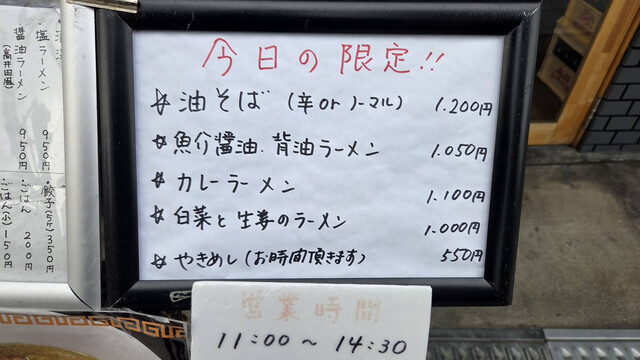 今日の限定!!
☆油そば (辛orノーマル) 1.200円
☆魚介醤油.背油ラーメン 1.050円
☆カレーラーメン 1.100円
☆白菜と生姜のラーメン 1.000円
☆やきめし(お時間頂きます) 550円
営業時間
11:00〜14:30
・塩ラーメン 950円
・醤油ラーメン 950円
(高井田風)
・餃子(5ケ) 350円
・ごはん 200円
・ごはん(小) 150円